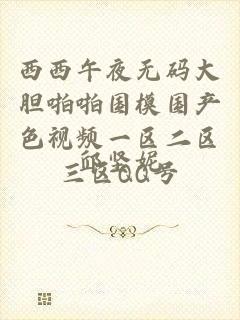 西西午夜无码大
胆啪啪国模国产
色视频一区二区
三区QQ号
邱坚妮